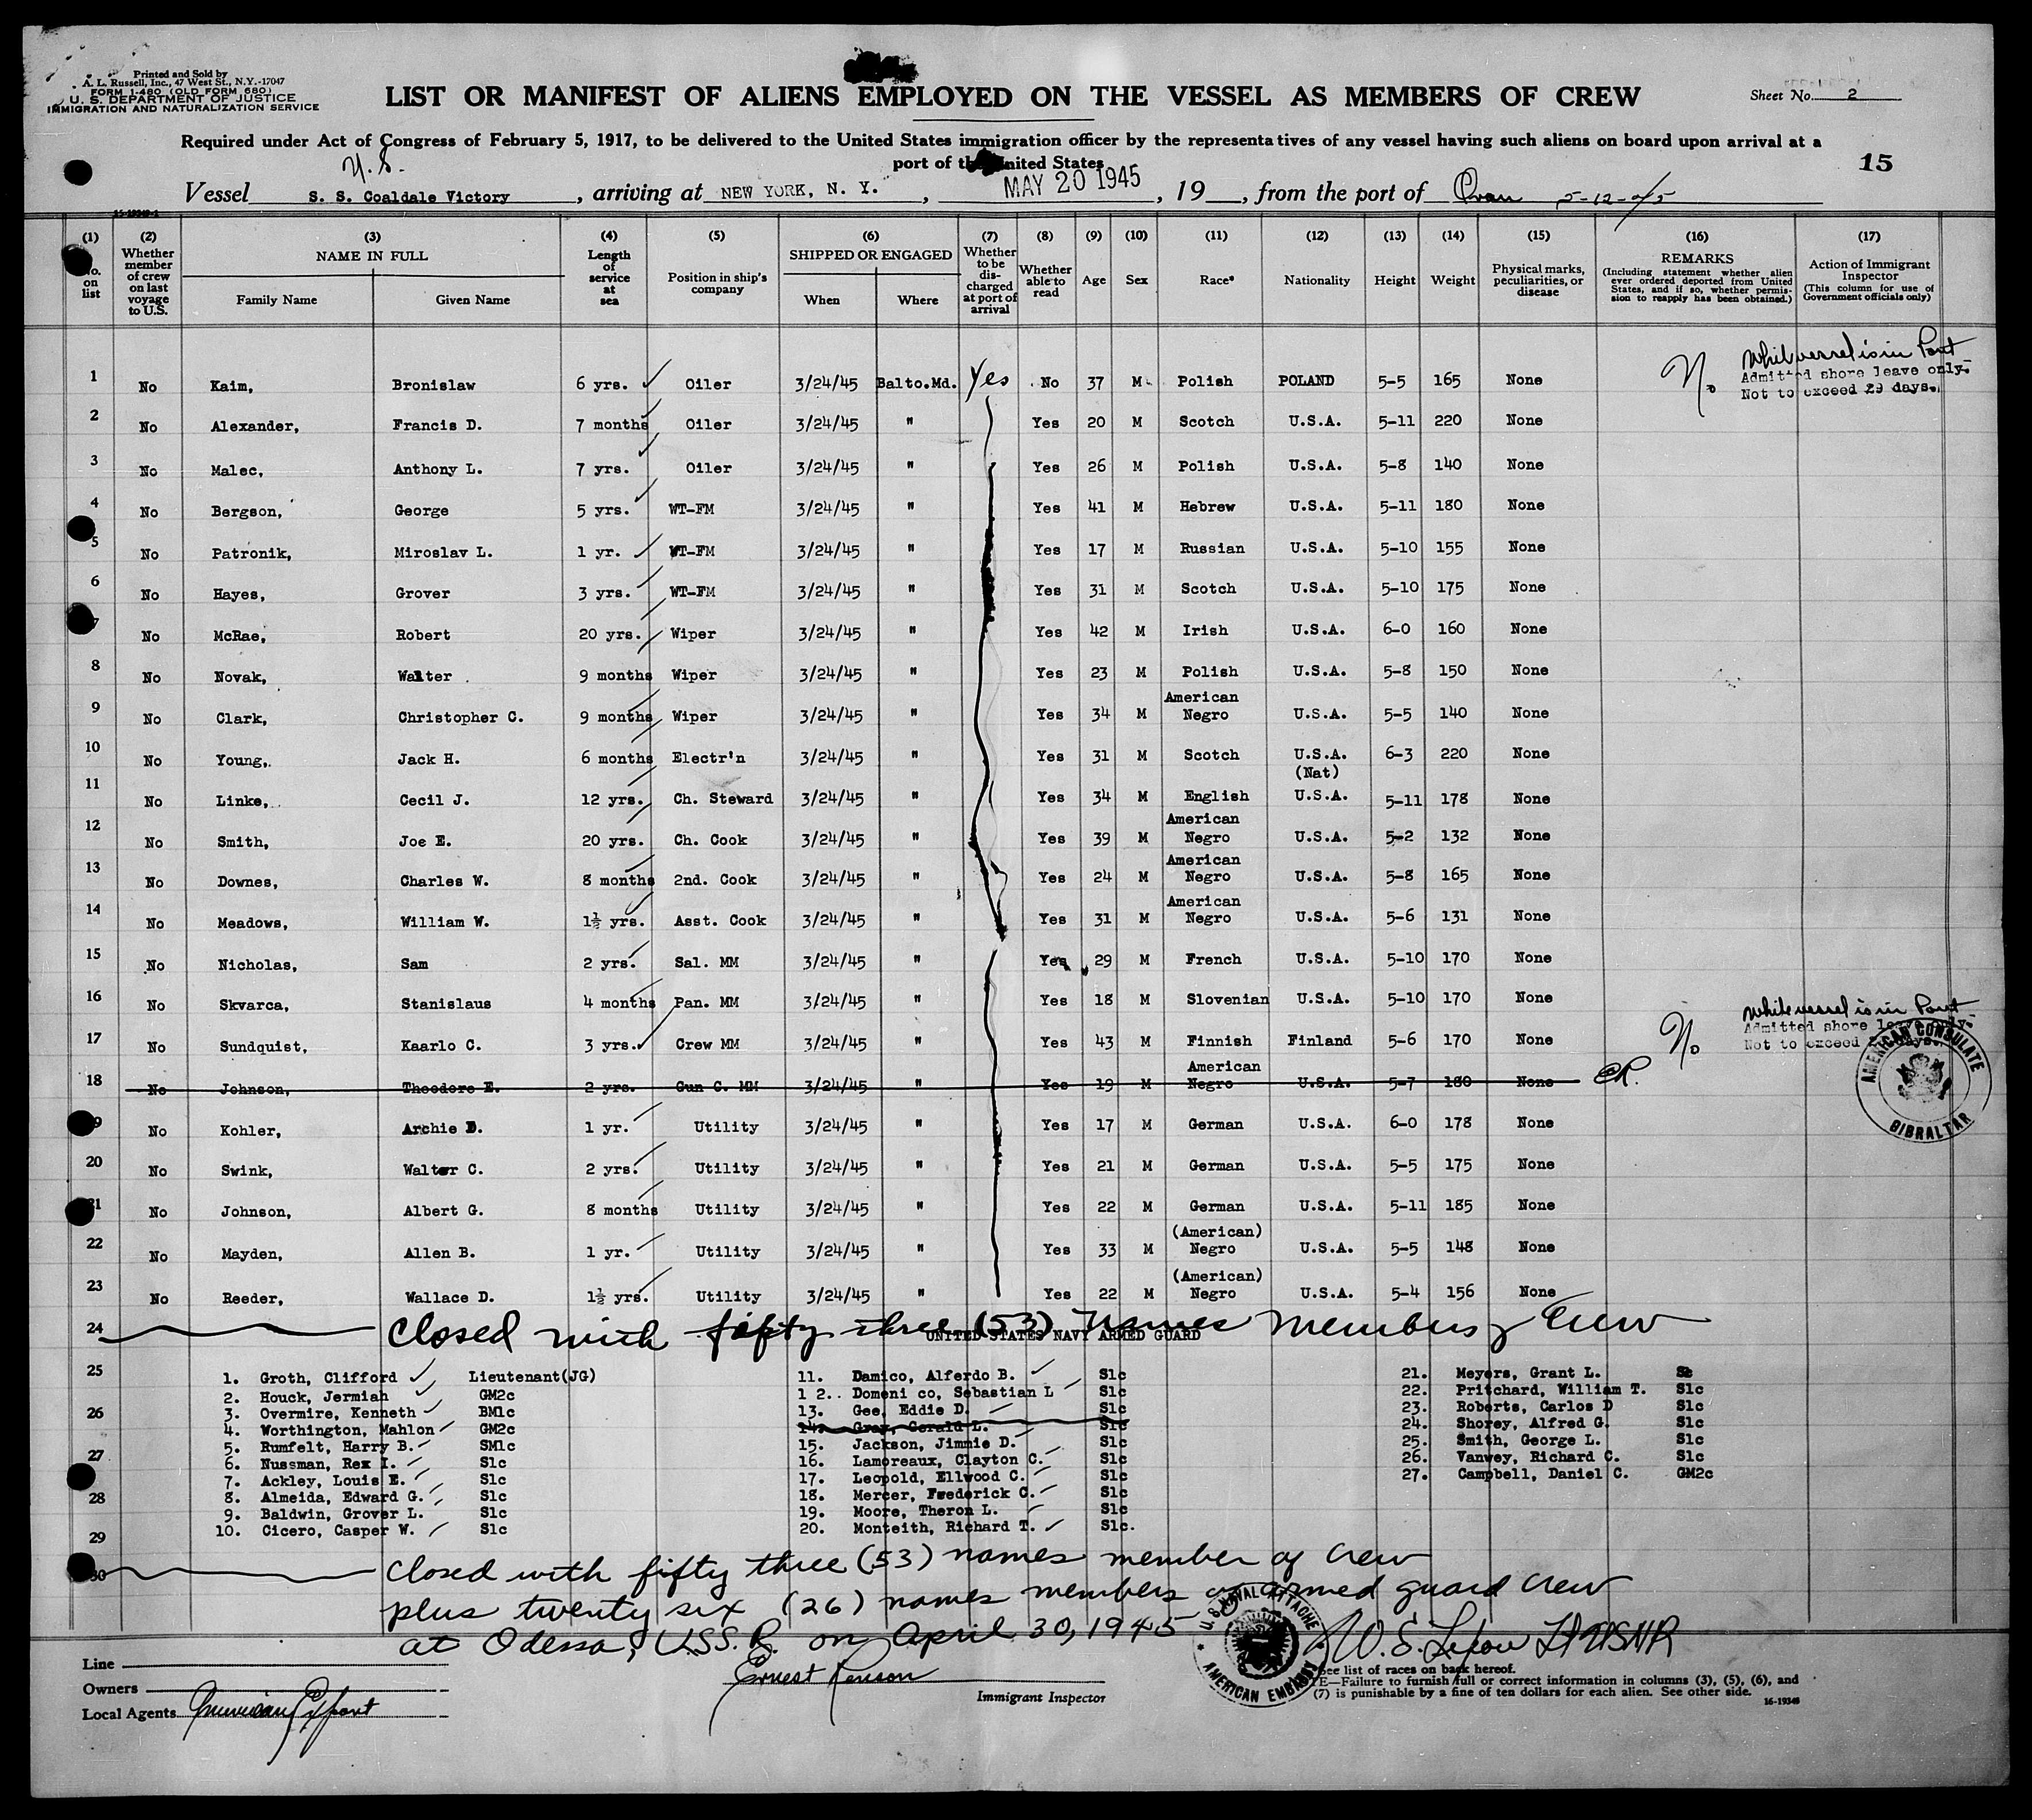 Printed and Sold by
A. L. Russell, Inc., 47 West St., N.Y.-17047
FORM I-480 (OLD FORM 680)
U. S. DEPARTMENT OF JUSTICE
IMMIGRATION AND NATURALIZATION SERVICE
LIST OR MANIFEST OF ALIENS EMPLOYED ON THE VESSEL AS MEMBERS OF CREW
Sheet No. 2
Required under Act of Congress of February 5, 1917, to be delivered to the United States immigration officer by the representatives of any vessel having such aliens on board upon arrival at a
port of the United States
15
U.S.
Vessel S. S. Coaldale Victory, arriving at NEW YORK, N. Y., MAY 20 1945, 19__, from the port of Oran 5-12-45
(1) (2) (3) (4) (5) (6) (7) (8) (9) (10) (11) (12) (13) (14) (15) (16) (17)
No. on list
Whether member of crew on last voyage to U.S.
NAME IN FULL
Family Name
Given Name
Length of service at sea
Position in ship's company
SHIPPED OR ENGAGED
When
Where
Whether to be discharged at port of arrival
Whether able to read
Age
Sex
Race*
Nationality
Height
Weight
Physical marks, peculiarities, or disease
REMARKS
(Including statement whether alien ever ordered deported from United States, and if so, whether permission to reapply has been obtained.)
Action of Immigrant Inspector
(This column for use of Government officials only)
1 No Kaim, Bronislaw 6 yrs. Oiler 3/24/45 Balto.Md. Yes No 37 M Polish POLAND 5-5 165 None No
While vessel is in Port
Admitted shore leave only.
Not to exceed 29 days.
2 No Alexander, Francis D. 7 months Oiler 3/24/45 " Yes 20 M Scotch U.S.A. 5-11 220 None
3 No Malec, Anthony L. 7 yrs. Oiler 3/24/45 " Yes 26 M Polish U.S.A. 5-8 140 None
4 No Bergson, George 5 yrs. WT-FM 3/24/45 " Yes 41 M Hebrew U.S.A. 5-11 180 None
5 No Patronik, Miroslav L. 1 yr. WT-FM 3/24/45 " Yes 17 M Russian U.S.A. 5-10 155 None
6 No Hayes, Grover 3 yrs. WT-FM 3/24/45 " Yes 31 M Scotch U.S.A. 5-10 175 None
7 No McRae, Robert 20 yrs. Wiper 3/24/45 " Yes 42 M Irish U.S.A. 6-0 160 None
8 No Novak, Walter 9 months Wiper 3/24/45 " Yes 23 M Polish U.S.A. 5-8 150 None
9 No Clark, Christopher C. 9 months Wiper 3/24/45 " Yes 34 M American Negro U.S.A. 5-5 140 None
10 No Young, Jack H. 6 months Electr'n 3/24/45 " Yes 31 M Scotch U.S.A. 6-3 220 None
11 No Linke, Cecil J. 12 yrs. Ch. Steward 3/24/45 " Yes 34 M English (Nat) U.S.A. 5-11 178 None
12 No Smith, Joe E. 20 yrs. Ch. Cook 3/24/45 " Yes 39 M American Negro U.S.A. 5-2 132 None
13 No Downes, Charles W. 8 months 2nd. Cook 3/24/45 " Yes 24 M American Negro U.S.A. 5-8 165 None
14 No Meadows, William W. 1½ yrs. Asst. Cook 3/24/45 " Yes 31 M American Negro U.S.A. 5-6 131 None
15 No Nicholas, Sam 2 yrs. Sal. MM 3/24/45 " Yes 29 M French U.S.A. 5-10 170 None
16 No Skvarca, Stanislaus 4 months Pan. MM 3/24/45 " Yes 18 M Slovenian U.S.A. 5-10 170 None
17 No Sundquist, Kaarlo C. 3 yrs. Crew MM 3/24/45 " Yes 43 M Finnish Finland 5-6 170 None No
While vessel is in Port
Admitted shore leave only.
Not to exceed days.
18 No Johnson, Theodore E. 2 yrs. Gun C. MM 3/24/45 " Yes 19 M American Negro U.S.A. 5-7 180 None
AMERICAN CONSULATE GIBRALTAR
19 No Kohler, Archie D. 1 yr. Utility 3/24/45 " Yes 17 M German U.S.A. 6-0 178 None
20 No Swink, Walter C. 2 yrs. Utility 3/24/45 " Yes 21 M German U.S.A. 5-5 175 None
21 No Johnson, Albert G. 8 months Utility 3/24/45 " Yes 22 M German U.S.A. 5-11 185 None
22 No Mayden, Allen B. 1 yr. Utility 3/24/45 " Yes 33 M (American) Negro U.S.A. 5-5 148 None
23 No Reeder, Wallace D. 1½ yrs. Utility 3/24/45 " Yes 22 M (American) Negro U.S.A. 5-4 156 None
24 Closed with fifty three (53) Names Members of Crew
UNITED STATES NAVY ARMED GUARD
25
26
27
28
29
30
1. Groth, Clifford Lieutenant(JG)
2. Houck, Jermiah GM2c
3. Overmire, Kenneth BM1c
4. Worthington, Mahlon GM2c
5. Rumfelt, Harry B. SM1c
6. Nussman, Rex I. S1c
7. Ackley, Louis E. S1c
8. Almeida, Edward G. S1c
9. Baldwin, Grover L. S1c
10. Cicero, Casper W. S1c
11. Damico, Alferdo B. S1c
1 2. Domeni co, Sebastian L S1c
13. Gee, Eddie D. S1c
14. Gray, Gerald L. S1c
15. Jackson, Jimmie D. S1c
16. Lamoreaux, Clayton C. S1c
17. Leopold, Ellwood C. S1c
18. Mercer, Frederick C. S1c
19. Moore, Theron L. S1c
20. Monteith, Richard T. S1c.
21. Meyers, Grant L.
22. Pritchard, William T. S1c
23. Roberts, Carlos D S1c
24. Shorey, Alfred G. S1c
25. Smith, George L. S1c
26. Vanwey, Richard C. S1c
27. Campbell, Daniel C. GM2c
Closed with fifty three (53) names member of crew
plus twenty six (26) names members armed guard crew
at Odessa, U.S.S.R. on April 30, 1945
U. S. NAVAL ATTACHE AMERICAN EMBASSY
Line
Owners
Local Agents American Export
Immigrant Inspector
See list of races on back hereof.
E—Failure to furnish full or correct information in columns (3), (5), (6), and
(7) is punishable by a fine of ten dollars for each alien. See other side.
16-19348